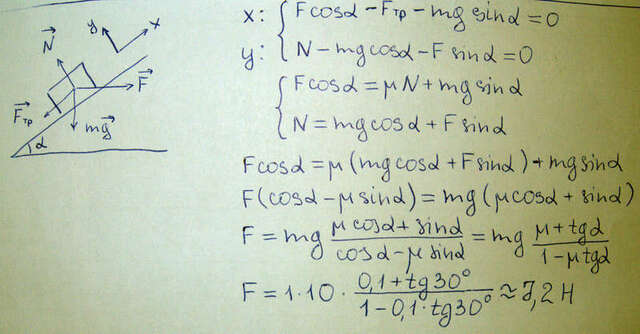 y x
N
F
Fтр
mg
α
x: { Fcosα - Fтр - mg sinα = 0
y: { N - mgcosα - F sinα = 0
{ Fcosα = μN + mg sinα
{ N = mgcosα + Fsinα
Fcosα = μ(mgcosα + Fsinα) + mgsinα
F(cosα - μsinα) = mg(μcosα + sinα)
F = mg (μcosα + sinα)/(cosα - μsinα) = mg (μ + tgα)/(1 - μtgα)
F = 1·10 · (0,1 + tg30°)/(1 - 0,1·tg30°) ≈ 7,2 Н